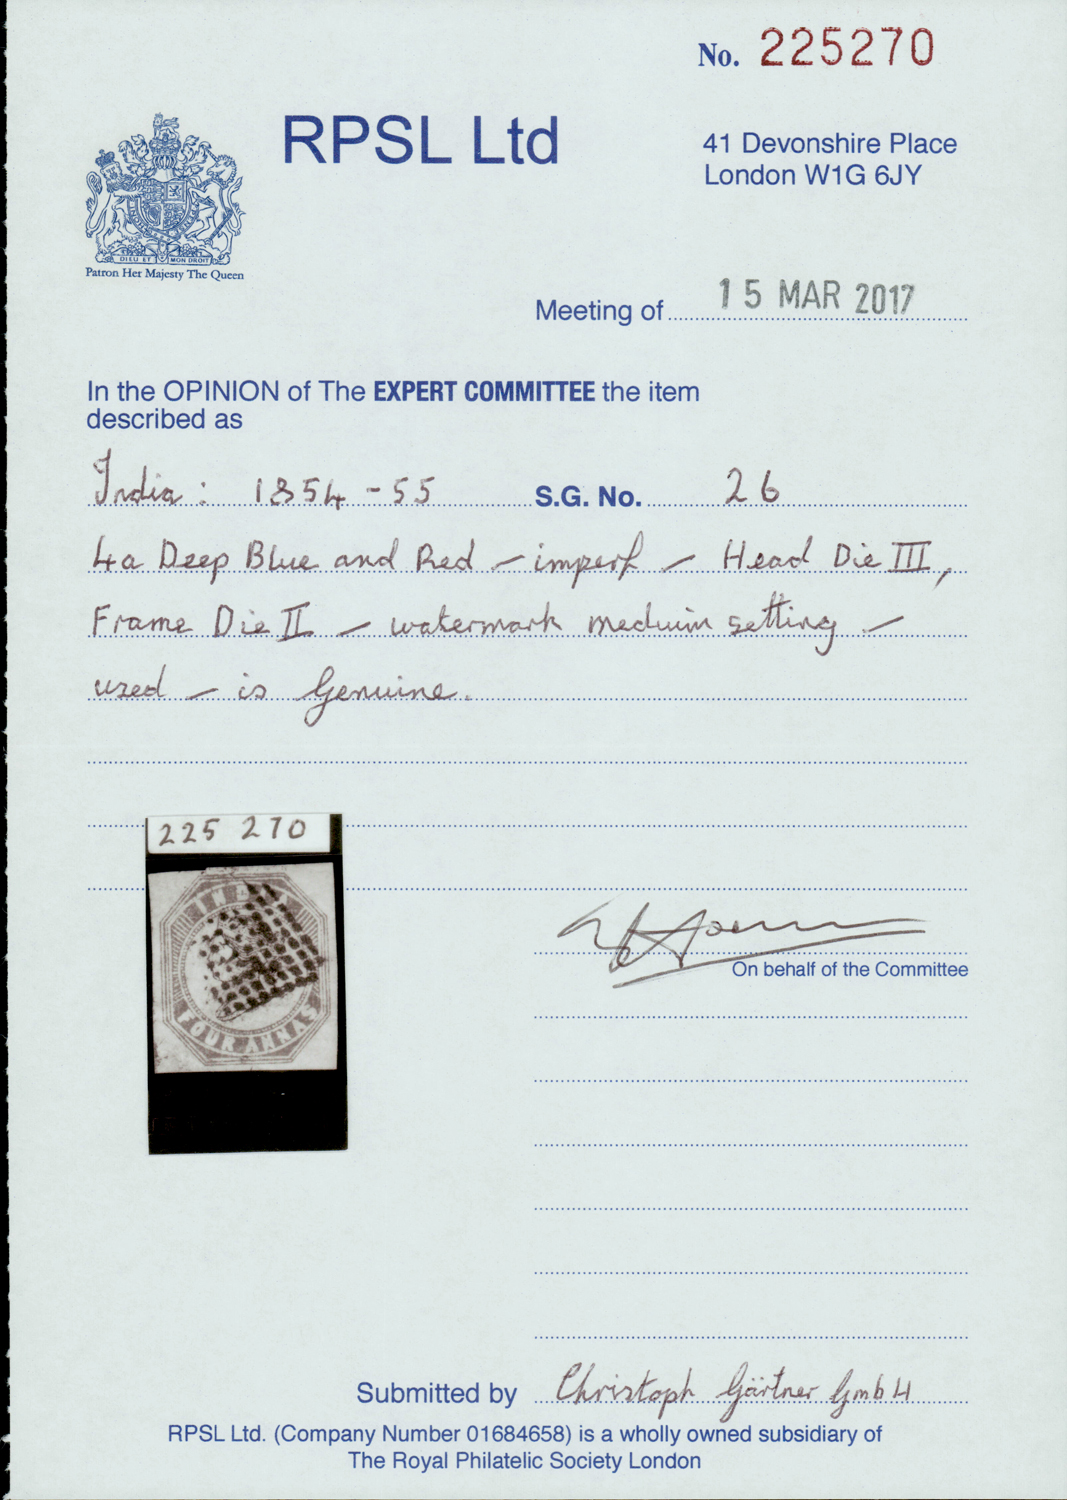 No. 225270
RPSL Ltd
41 Devonshire Place
London W1G 6JY
DIEU ET MON DROIT
Patron Her Majesty The Queen
Meeting of 15 MAR 2017
In the OPINION of The EXPERT COMMITTEE the item
described as
India: 1854-55 S.G. No. 26
4a Deep Blue and Red – imperf – Head Die III,
Frame Die II – watermark medium setting –
used – is Genuine.
225 270
INDIA
FOUR ANNAS
On behalf of the Committee
Submitted by Christoph Gärtner GmbH
RPSL Ltd. (Company Number 01684658) is a wholly owned subsidiary of
The Royal Philatelic Society London